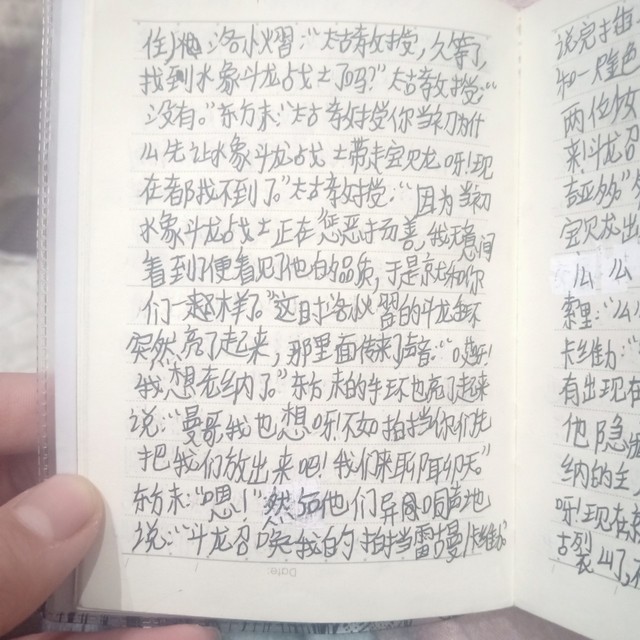 住他。洛小熠：“太古教授，久等了，
找到水象斗龙战士了吗？”太古教授：“
没有。”东方末：“太古教授你当初为什
么先让水象斗龙战士带走宝贝龙呀！现
在都找不到了。”太古教授：“因为当初
水象斗龙战士正在惩恶于扬善，我无意间
看到了便看见了他的品质，于是就和你
们一起的样了。”这时洛小熠的斗龙手环
突然亮了起来，那里面传来了声音：“哎呀！
我想老纳了。”东方末的手环也亮了起来
说：“曼哥，我也想呀！不如拍挡你们先
把我们放出来吧！我们来聊聊天。”
东方末：“嗯！”然后他们异口同声地
说：“斗龙召唤我的拍挡雷古曼/卡维力”
Date:
说完手
和一只
两位少
来！斗龙召
吉亚多多”
宝贝龙出
“么么
索里：“么
卡维力：“
有出现在
他隐
纳的主
呀！现在
古裂山了，